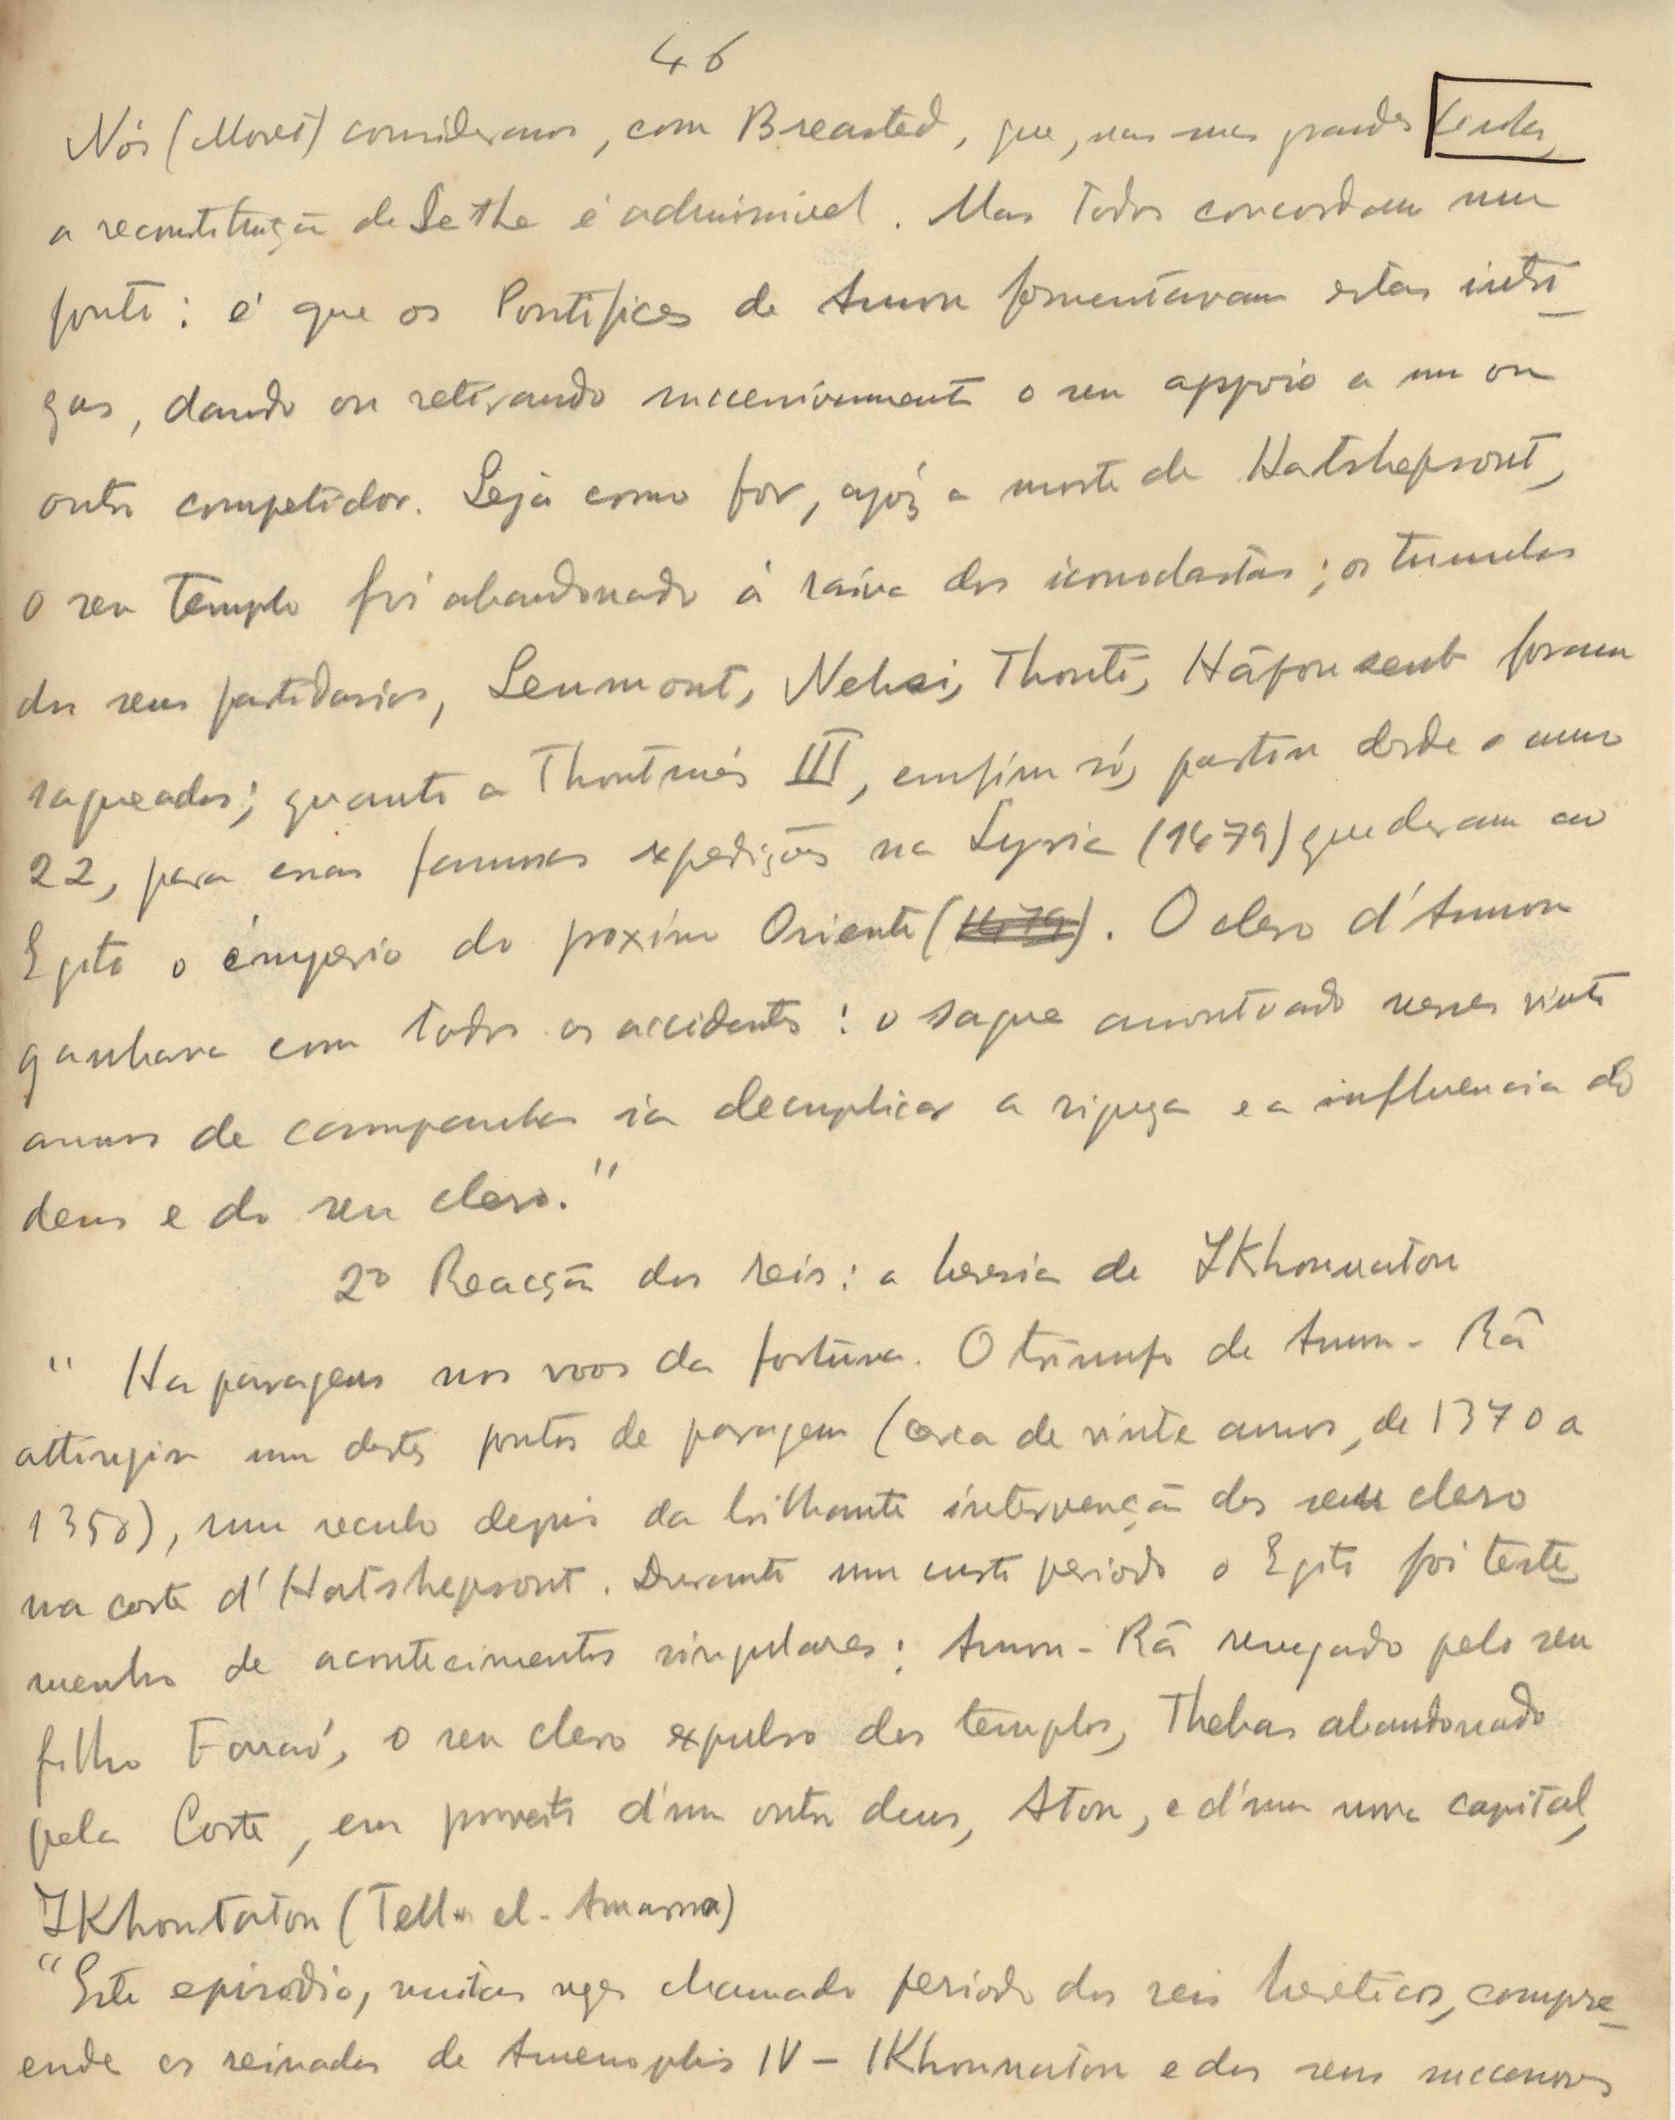 46
Nós (Moret) consideramos, com Breasted, que, nas suas grandes linhas,
a reconstituição de Sethe é admissivel. Mas todos concordam num
ponto: é que os Pontifices de Amon fomentavam estas intri
gas, dando ou retirando successivamente o seu appoio a um ou
outro competidor. Seja como for, após a morte de Hatshepsout,
o seu templo foi abandonado á raiva dos iconoclastas; os tumulos
dos seus partidarios, Senmout, Nehsi, Thouti, Hâpousenb foram
saqueados; quanto a Thoutmés III, emfim só, partiu desde o anno
22, para essas famosas expedições na Syria (1479) que deram ao
Egito o império do proximo Oriente (1479). O clero d'Amon
ganhava com todos os accidentes: o saque amontoado nesses vinte
annos de campanhas ia decuplicar a riqueza e a influencia do
deus e do seu clero."
2º Reacção dos reis: a heresia de IKhounaton
" Ha paragens nos voos da fortuna. O triumfo de Amon-Râ
attingiu um destes pontos de paragem (cerca de vinte annos, de 1370 a
1350), um seculo depois da brilhante intervenção dos seu clero
na corte d'Hatshepsout. Durante um curto periodo o Egito foi teste
munho de acontecimentos singulares: Amon-Râ renegado pelo seu
filho Faraó, o seu clero expulso dos templos, Thebas abandonado
pela Corte, em proveito d'um outro deus, Aton, e d'uma nova capital,
IKhoutaton (Tell-el-Amarna)
"Este episodio, muitas vezes chamado periodo dos reis hereticos, compre
ende os reinados de Amenophis IV - IKhounaton e dos seus successores